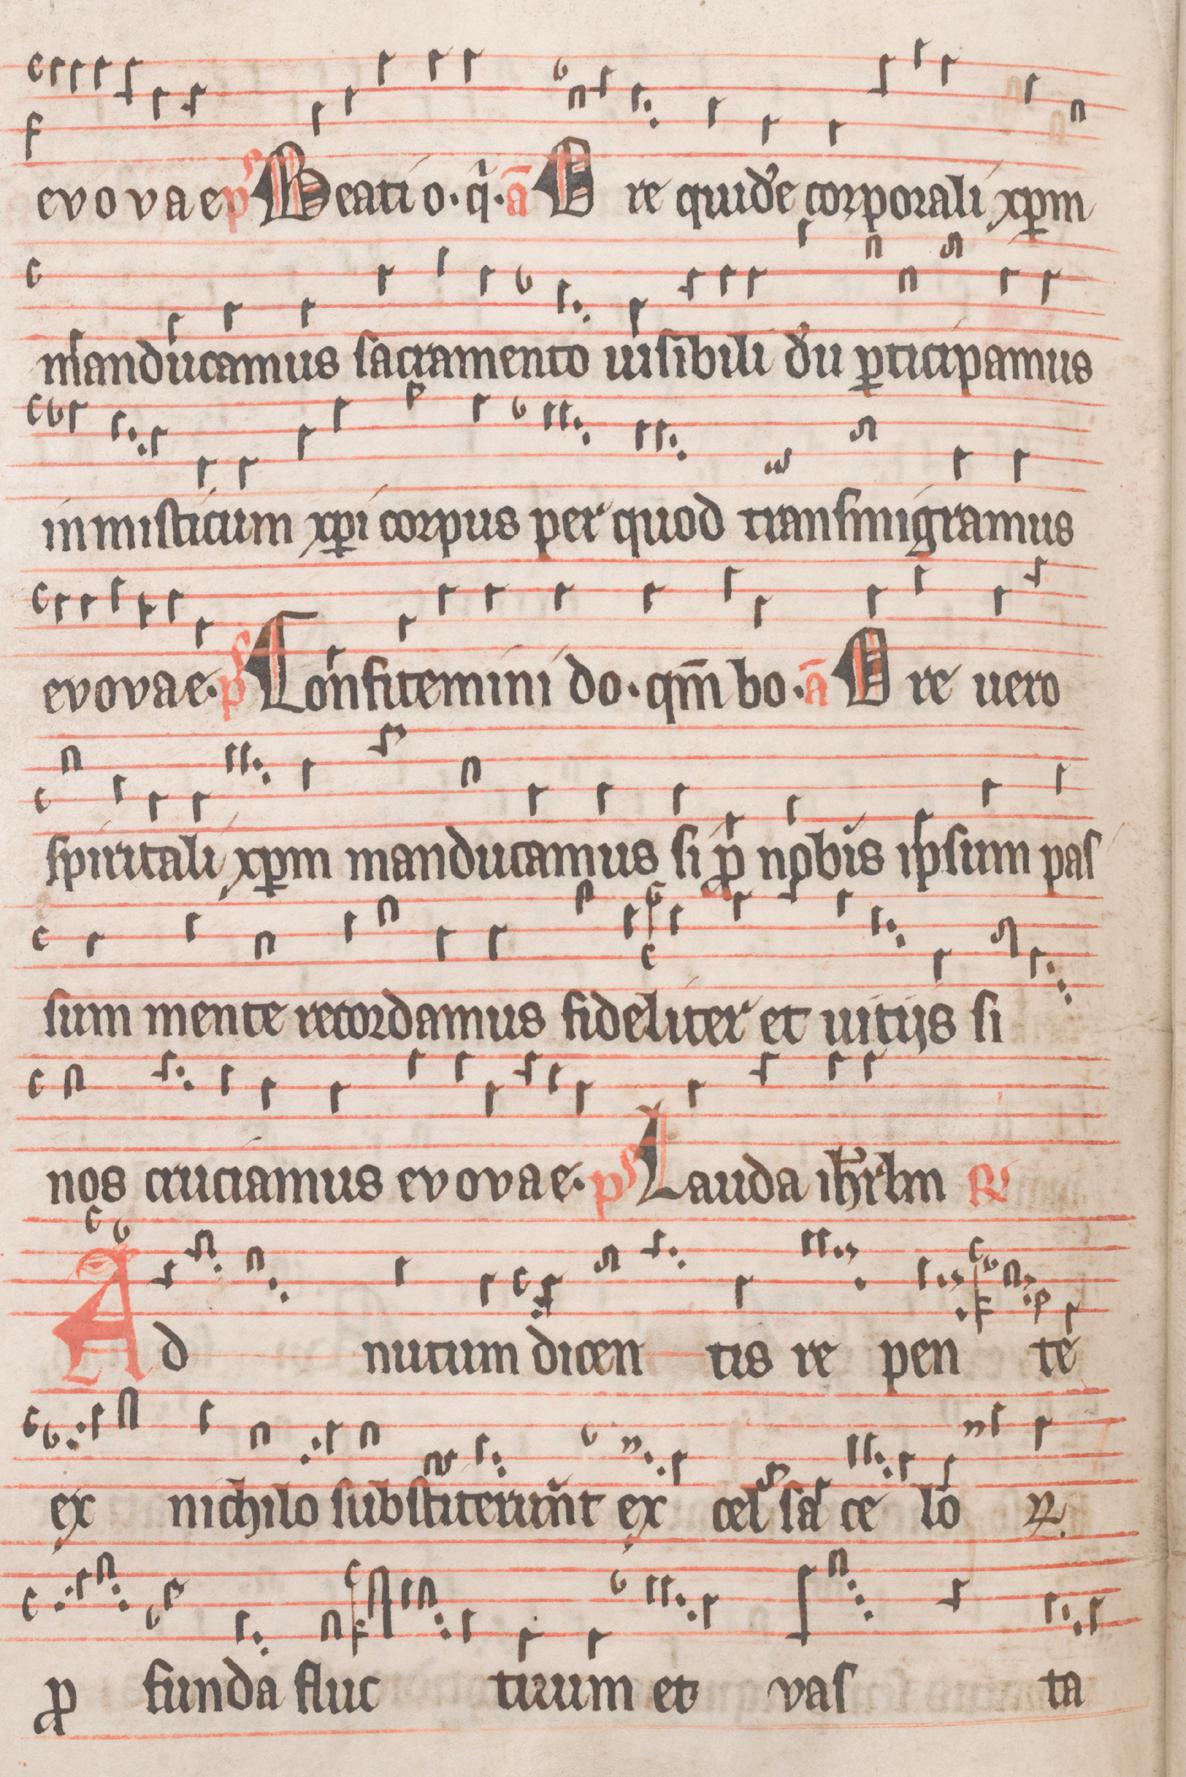 evovae ps Beati o. qi. a᷃ Ore quidē corporali xp̄m
manducamus sacramento uisibili dūu ꝑticipamus
in misticum xp̄i corpus per quod transmigramus
evovae. ps Confitemini do. qm̄ bo. ā Ore uero
spiritali xp̄m manducamus si ꝓ nobis ipsum pas
sum mente recordamus fideliter et uitijs si
nos cruciamus evovae. ps Lauda ihrl̄m R
Ad nutum dicen tis re pen te
ex nichilo substiterunt ex celsa ce lo
ꝓ funda fluc tuum et vas ta